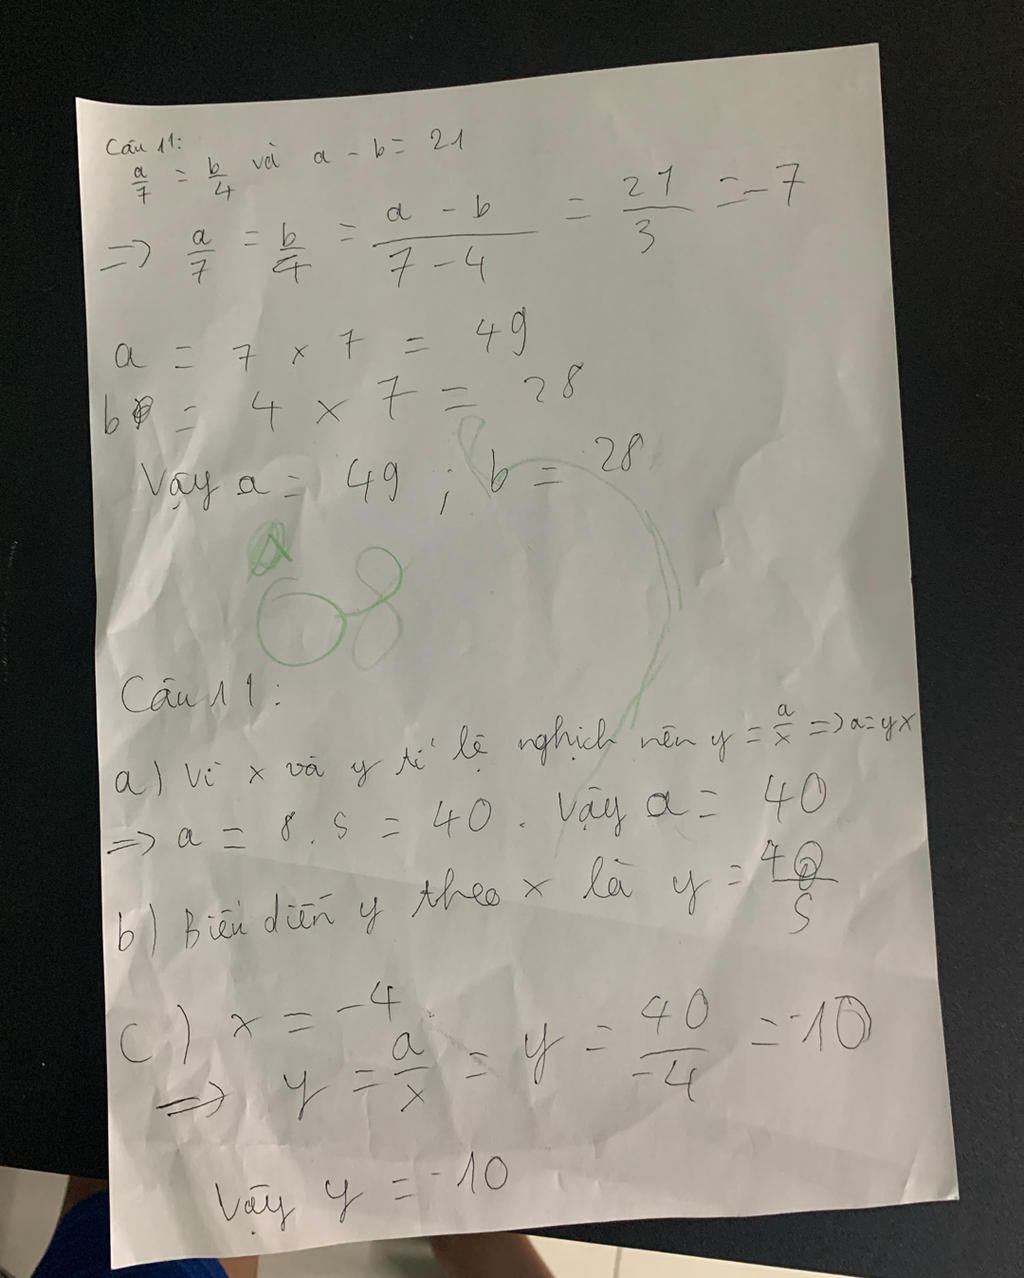 Câu 11:
a/7 = b/4 và a - b = 21
=> a/7 = b/4 = (a - b)/(7 - 4) = 21/3 = -7
a = 7 × 7 = 49
b = 4 × 7 = 28
Vậy a = 49 ; b = 28
Câu 11:
a) Vì x và y tỉ lệ nghịch nên y = a/x => a = yx
=> a = 8.5 = 40. Vậy a = 40
b) Biểu diễn y theo x là y = 40/5
c) x = -4
=> y = a/x = y = 40/-4 = -10
Vậy y = -10